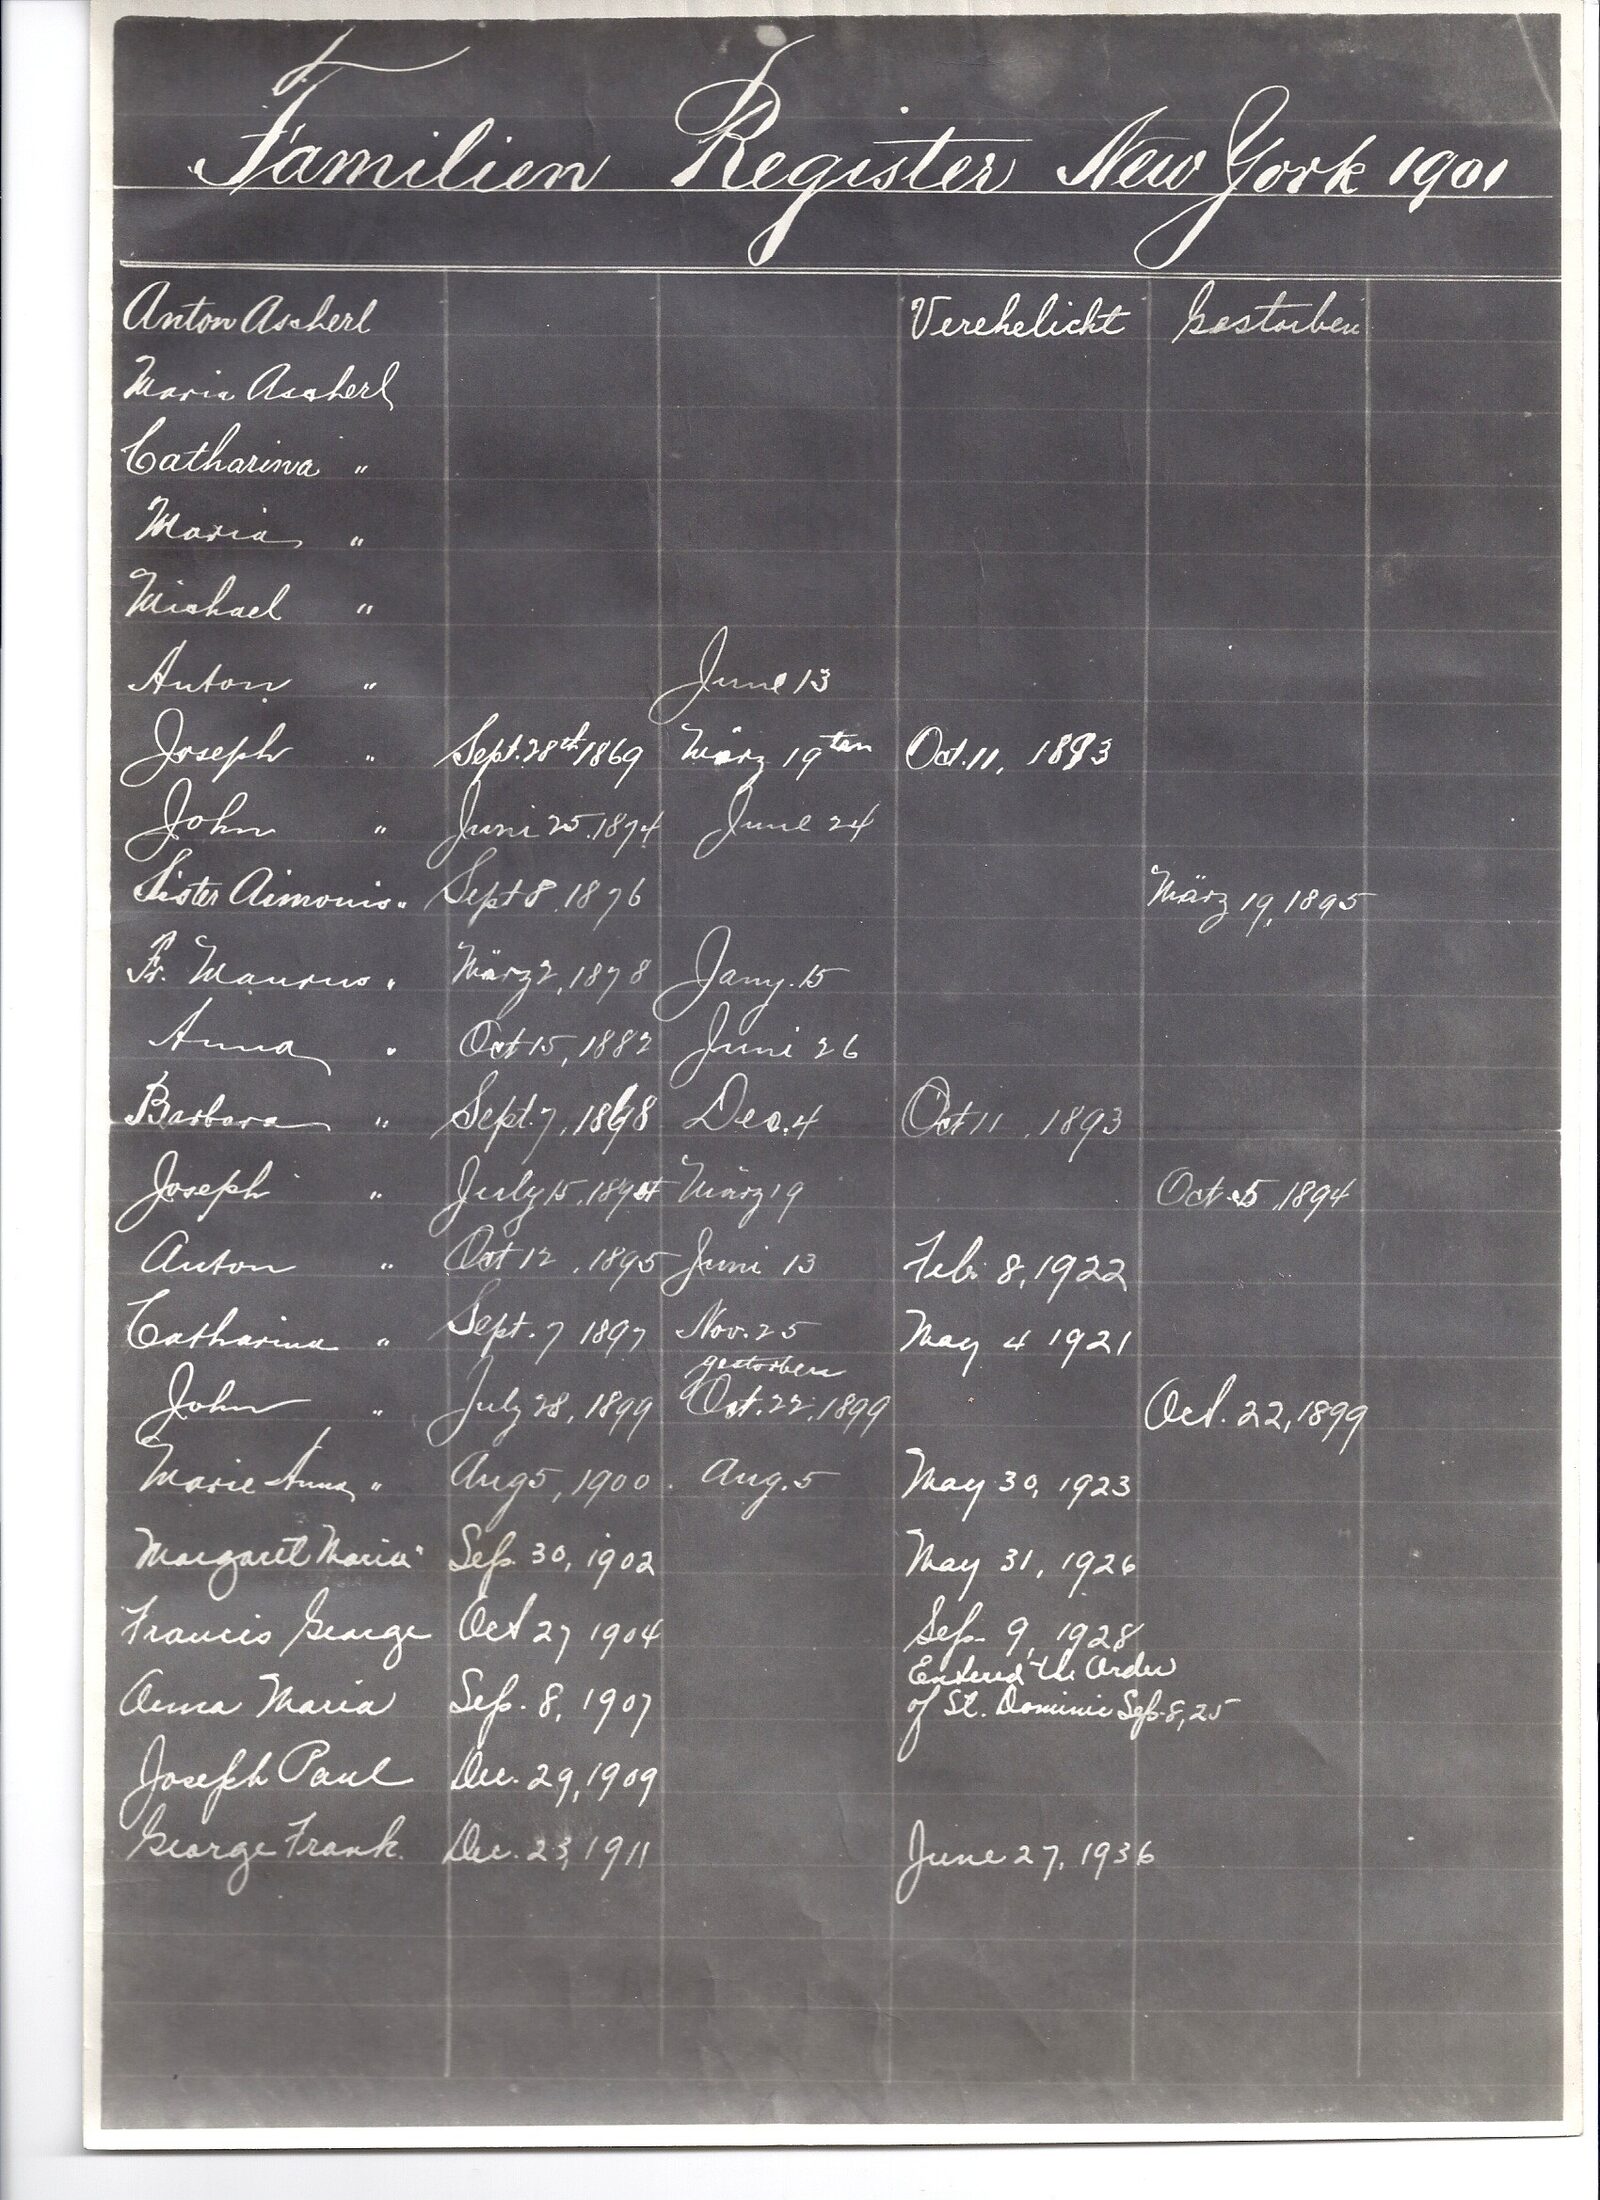 Familien Register New York 1901
Anton Ascherl Verehelicht Gestorben
Maria Ascherl
Catharina "
Maria "
Michael "
Anton " June 13
Joseph " Sept. 28th 1869 März 19ten Oct. 11, 1893
John " Juni 25. 1874 June 24
Sister Aimonis " Sept 8, 1876 März 19, 1895
Fr. Maurus " März 2, 1878 Jany. 15
Anna " Oct 15, 1882 Juni 26
Barbara " Sept. 7, 1868 Dec. 4 Oct 11, 1893
Joseph " July 15, 1894 März 19 Oct. 5, 1894
Anton " Oct 12, 1895 Juni 13 Feb. 8, 1922
Catharina " Sept. 7 1897 Nov. 25 May 4 1921
gestorben
John " July 28, 1899 Oct. 22, 1899 Oct. 22, 1899
Marie Anna " Aug 5, 1900. Aug. 5 May 30, 1923
Margaret Maria " Sep. 30, 1902 May 31, 1926
Francis George Oct 27 1904 Sep. 9, 1928
Entered the Order
Anna Maria Sep. 8, 1907 of St. Dominic Sep. 8, 25
Joseph Paul Dec. 29, 1909
George Frank. Dec. 23, 1911 June 27, 1936